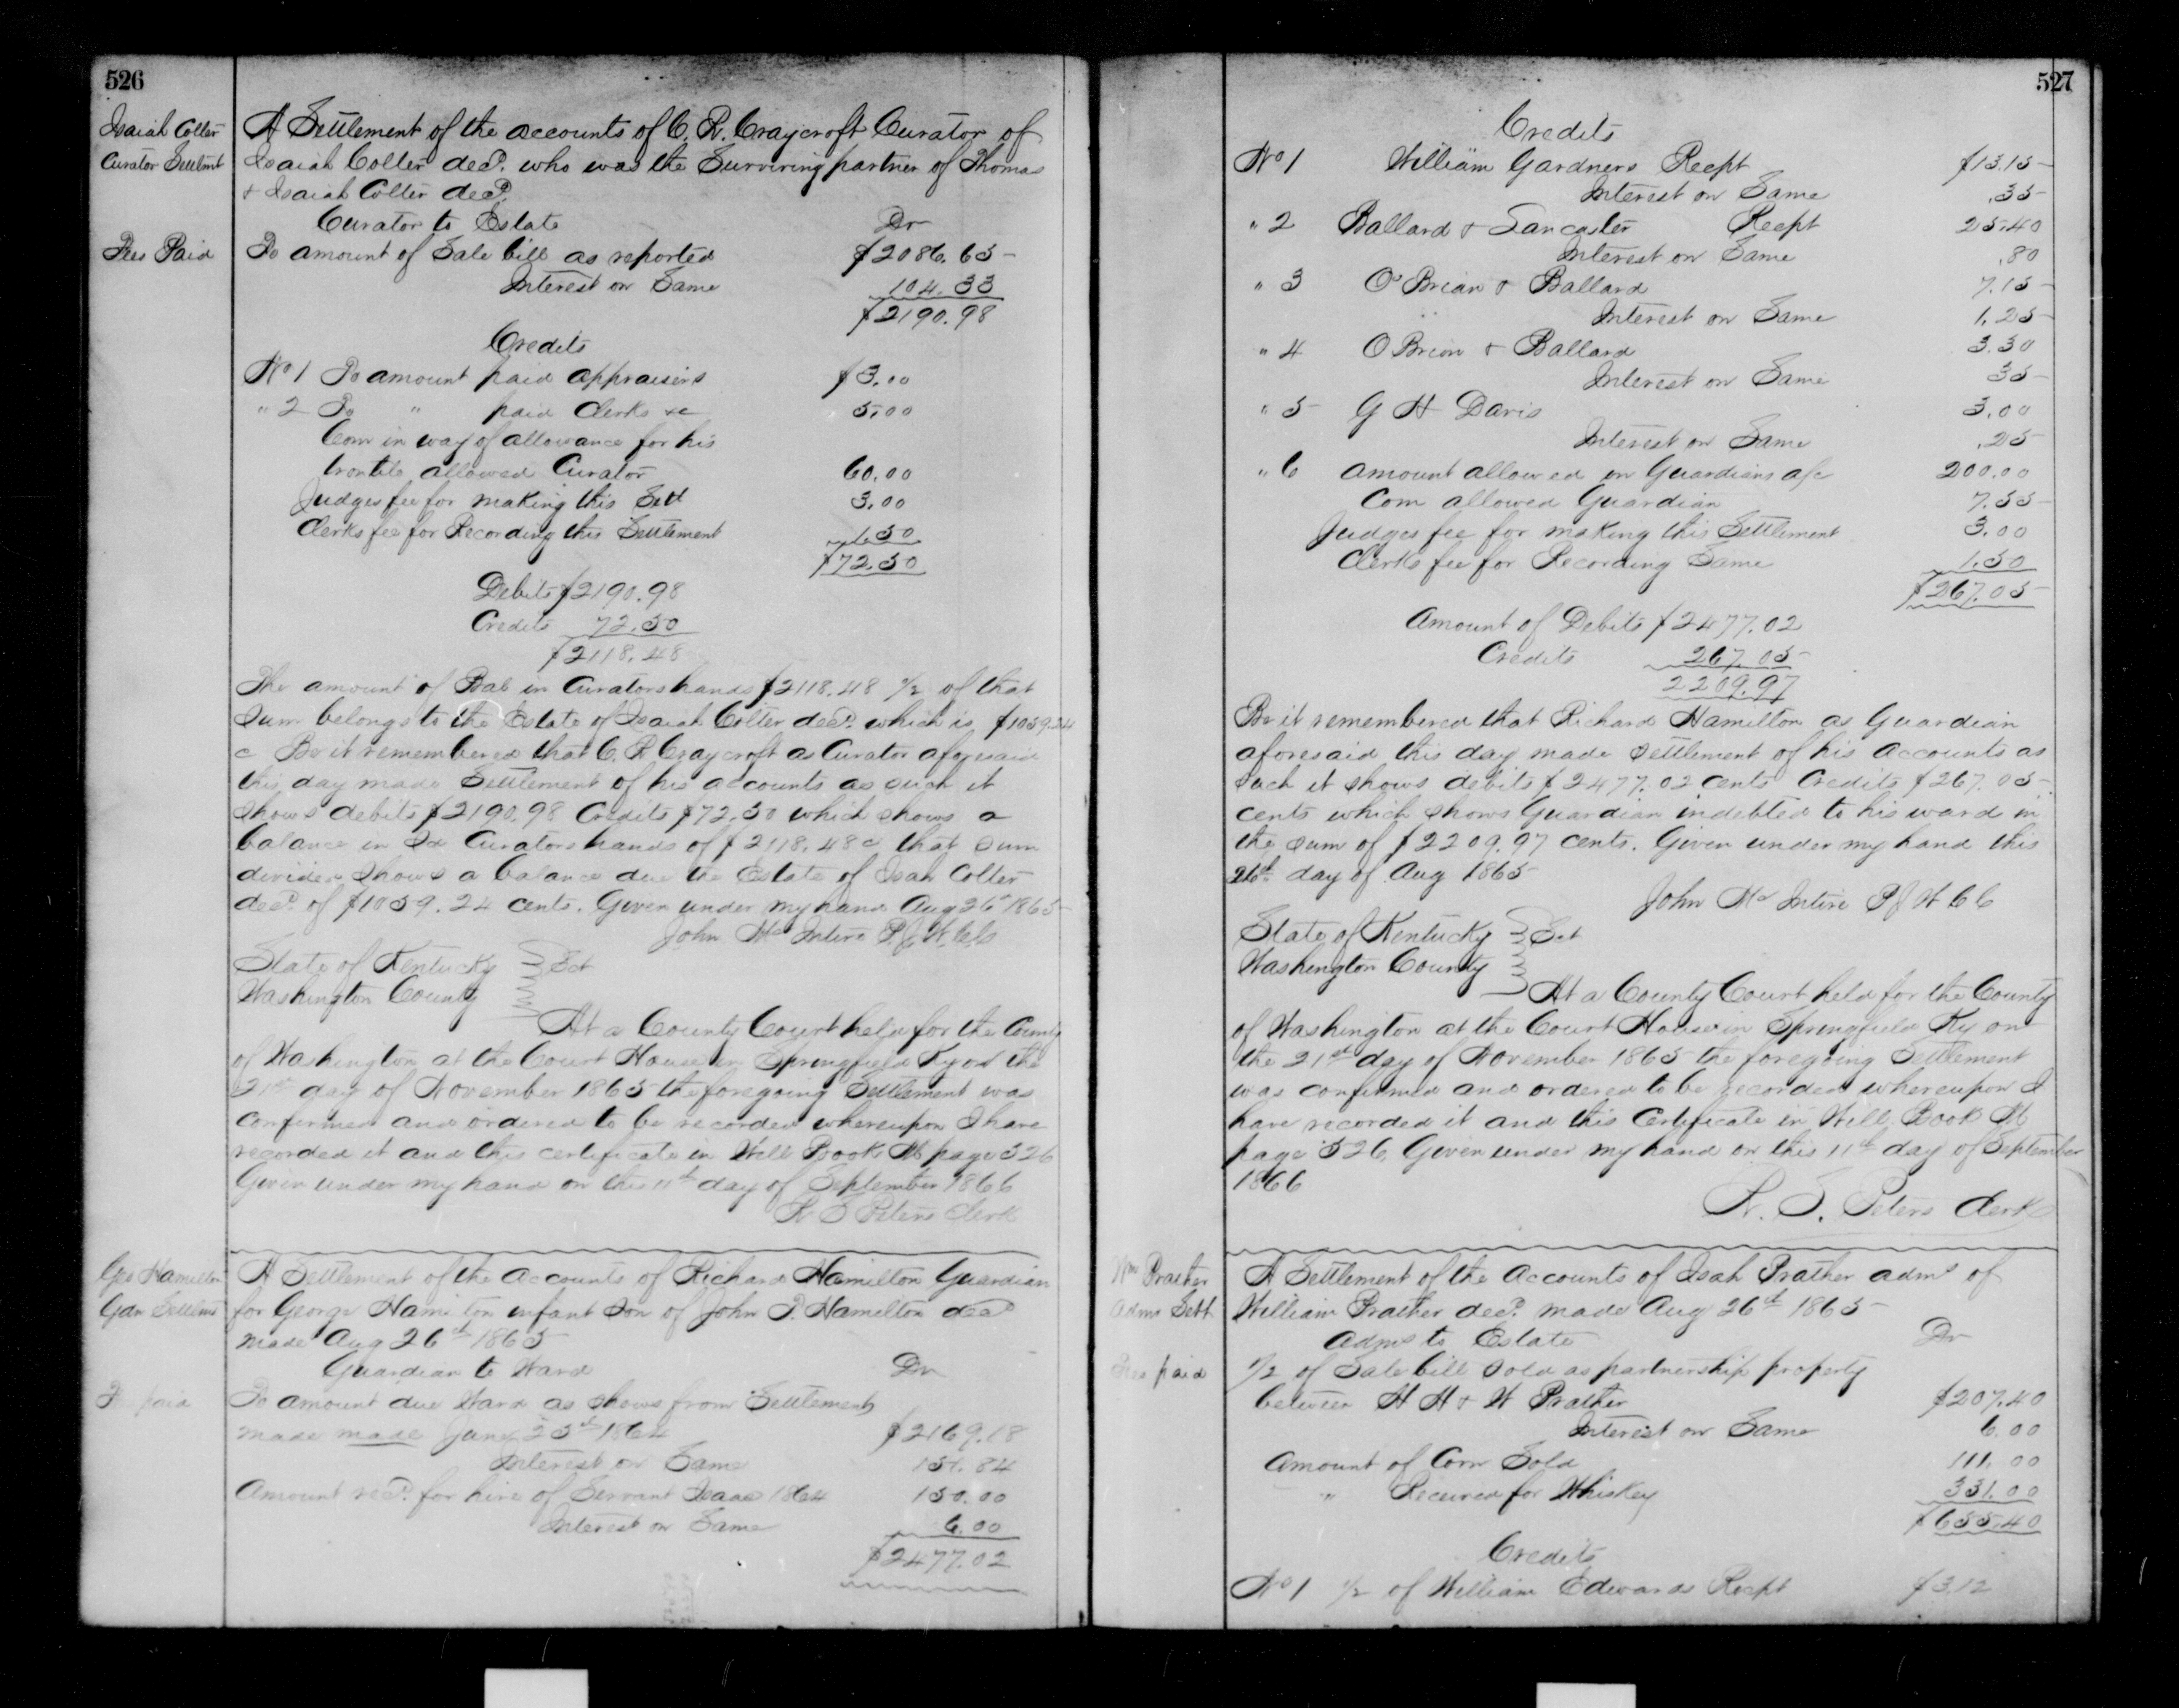 526
Isaiah Colter
Curator Settlmt
A Settlement of the accounts of C. R. Craycroft Curator of
Isaiah Colter decd. who was the Surviving partner of Thomas
& Isaiah Colter decd.
Curator to Estate Dr
Fees Paid
To amount of Sale bill as reported $2086.65
Interest on Same 104.33
$2190.98
Credits
No 1 To amount paid appraisers $3.00
" 2 To " paid Clerks &c 5.00
Com in way of allowance for his
trouble allowed Curator 60.00
Judges fee for making this Sett 3.00
Clerks fee for Recording this Settlement 1.50
$72.50
Debits $2190.98
Credits 72.50
$2118.48
The amount of Bal in Curators hands $2118.48 1/2 of that
Sum belongs to the Estate of Isaiah Colter decd. which is $1059.24
c Be it remembered that C. R Craycroft as Curator aforesaid
this day made Settlement of his accounts as such it
shows debits $2190.98 Credits $72.50 which shows a
balance in Sd Curators hands of $2118.48c that sum
divided shows a balance due the Estate of Isah Colter
decd. of $1059.24 cents. Given under my hand Aug 26th 1865
John McIntire P. J. W. C. C
State of Kentucky
Washington County Sct
At a County Court held for the County
of Washington at the Court House in Springfield Ky on the
21st day of November 1865 the foregoing Settlement was
confirmed and ordered to be recorded whereupon I have
recorded it and this certificate in Will Book M page 526
Given under my hand on this 11th day of September 1866
W S Peters Clerk
Geo Hamilton
Gdn Settlmt
A Settlement of the Accounts of Richard Hamilton Guardian
for George Hamilton infant Son of John P. Hamilton decd
made Aug 26th 1865
Guardian to Ward Dr
Fees paid
To amount due Ward as shows from Settlement
made made June 25th 1864 $2169.18
Interest on Same 151.84
Amount recd. for hire of Servant Isaac 1864 150.00
Interest on Same 6.00
$2477.02
527
Credits
No 1 William Gardners Recpt $15.15
Interest on Same .35
" 2 Ballard & Lancaster Recpt 25.40
Interest on Same .80
" 3 O'Brian & Ballard 7.15
Interest on Same 1.25
" 4 O Brion & Ballard 3.30
Interest on Same 35
" 5 G H Davis 3.00
Interest on Same .25
" 6 Amount allowed on Guardians a/c 200.00
Com allowed Guardian 7.55
Judges fee for making this Settlement 3.00
Clerks fee for Recording Same 1.50
$267.05
Amount of Debits $2477.02
Credits 267.05
2209.97
Be it remembered that Richard Hamilton as Guardian
aforesaid this day made Settlement of his Accounts as
Such it shows debits $2477.02 cents Credits $267.05
cents which shows Guardian indebted to his ward in
the sum of $2209.97 cents. Given under my hand this
26th day of Aug 1865
John McIntire P J W C C
State of Kentucky
Washington County Sct
At a County Court held for the County
of Washington at the Court House in Springfield Ky on
the 21st day of November 1865 the foregoing Settlement
was confirmed and ordered to be recorded whereupon I
have recorded it and this Certificate in Will Book M
page 526. Given under my hand on this 11th day of September
1866
W. S. Peters Clerk
Wm Prather
Adm Sett
A Settlement of the Accounts of Isah Prather admr of
William Prather decd. made Aug 26th 1865
Admr to Estate Dr
Fees paid
1/2 of Sale bill Sold as partnership property
between H H & W Prather $207.40
Interest on Same 6.00
Amount of Corn Sold 111.00
" Received for Whiskey 331.00
$655.40
Credits
No 1 1/2 of William Edwards Recpt $3.12